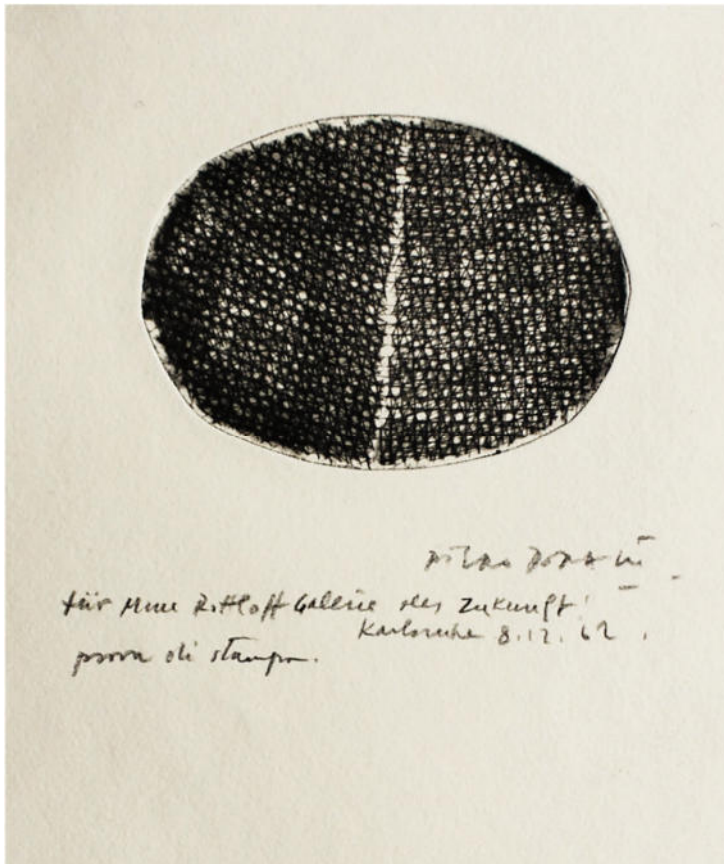 Piero Dorazio
für Mme Rottloff Gallerie der Zukunft!
Karlsruhe 8.12.62.
prova di stampa.